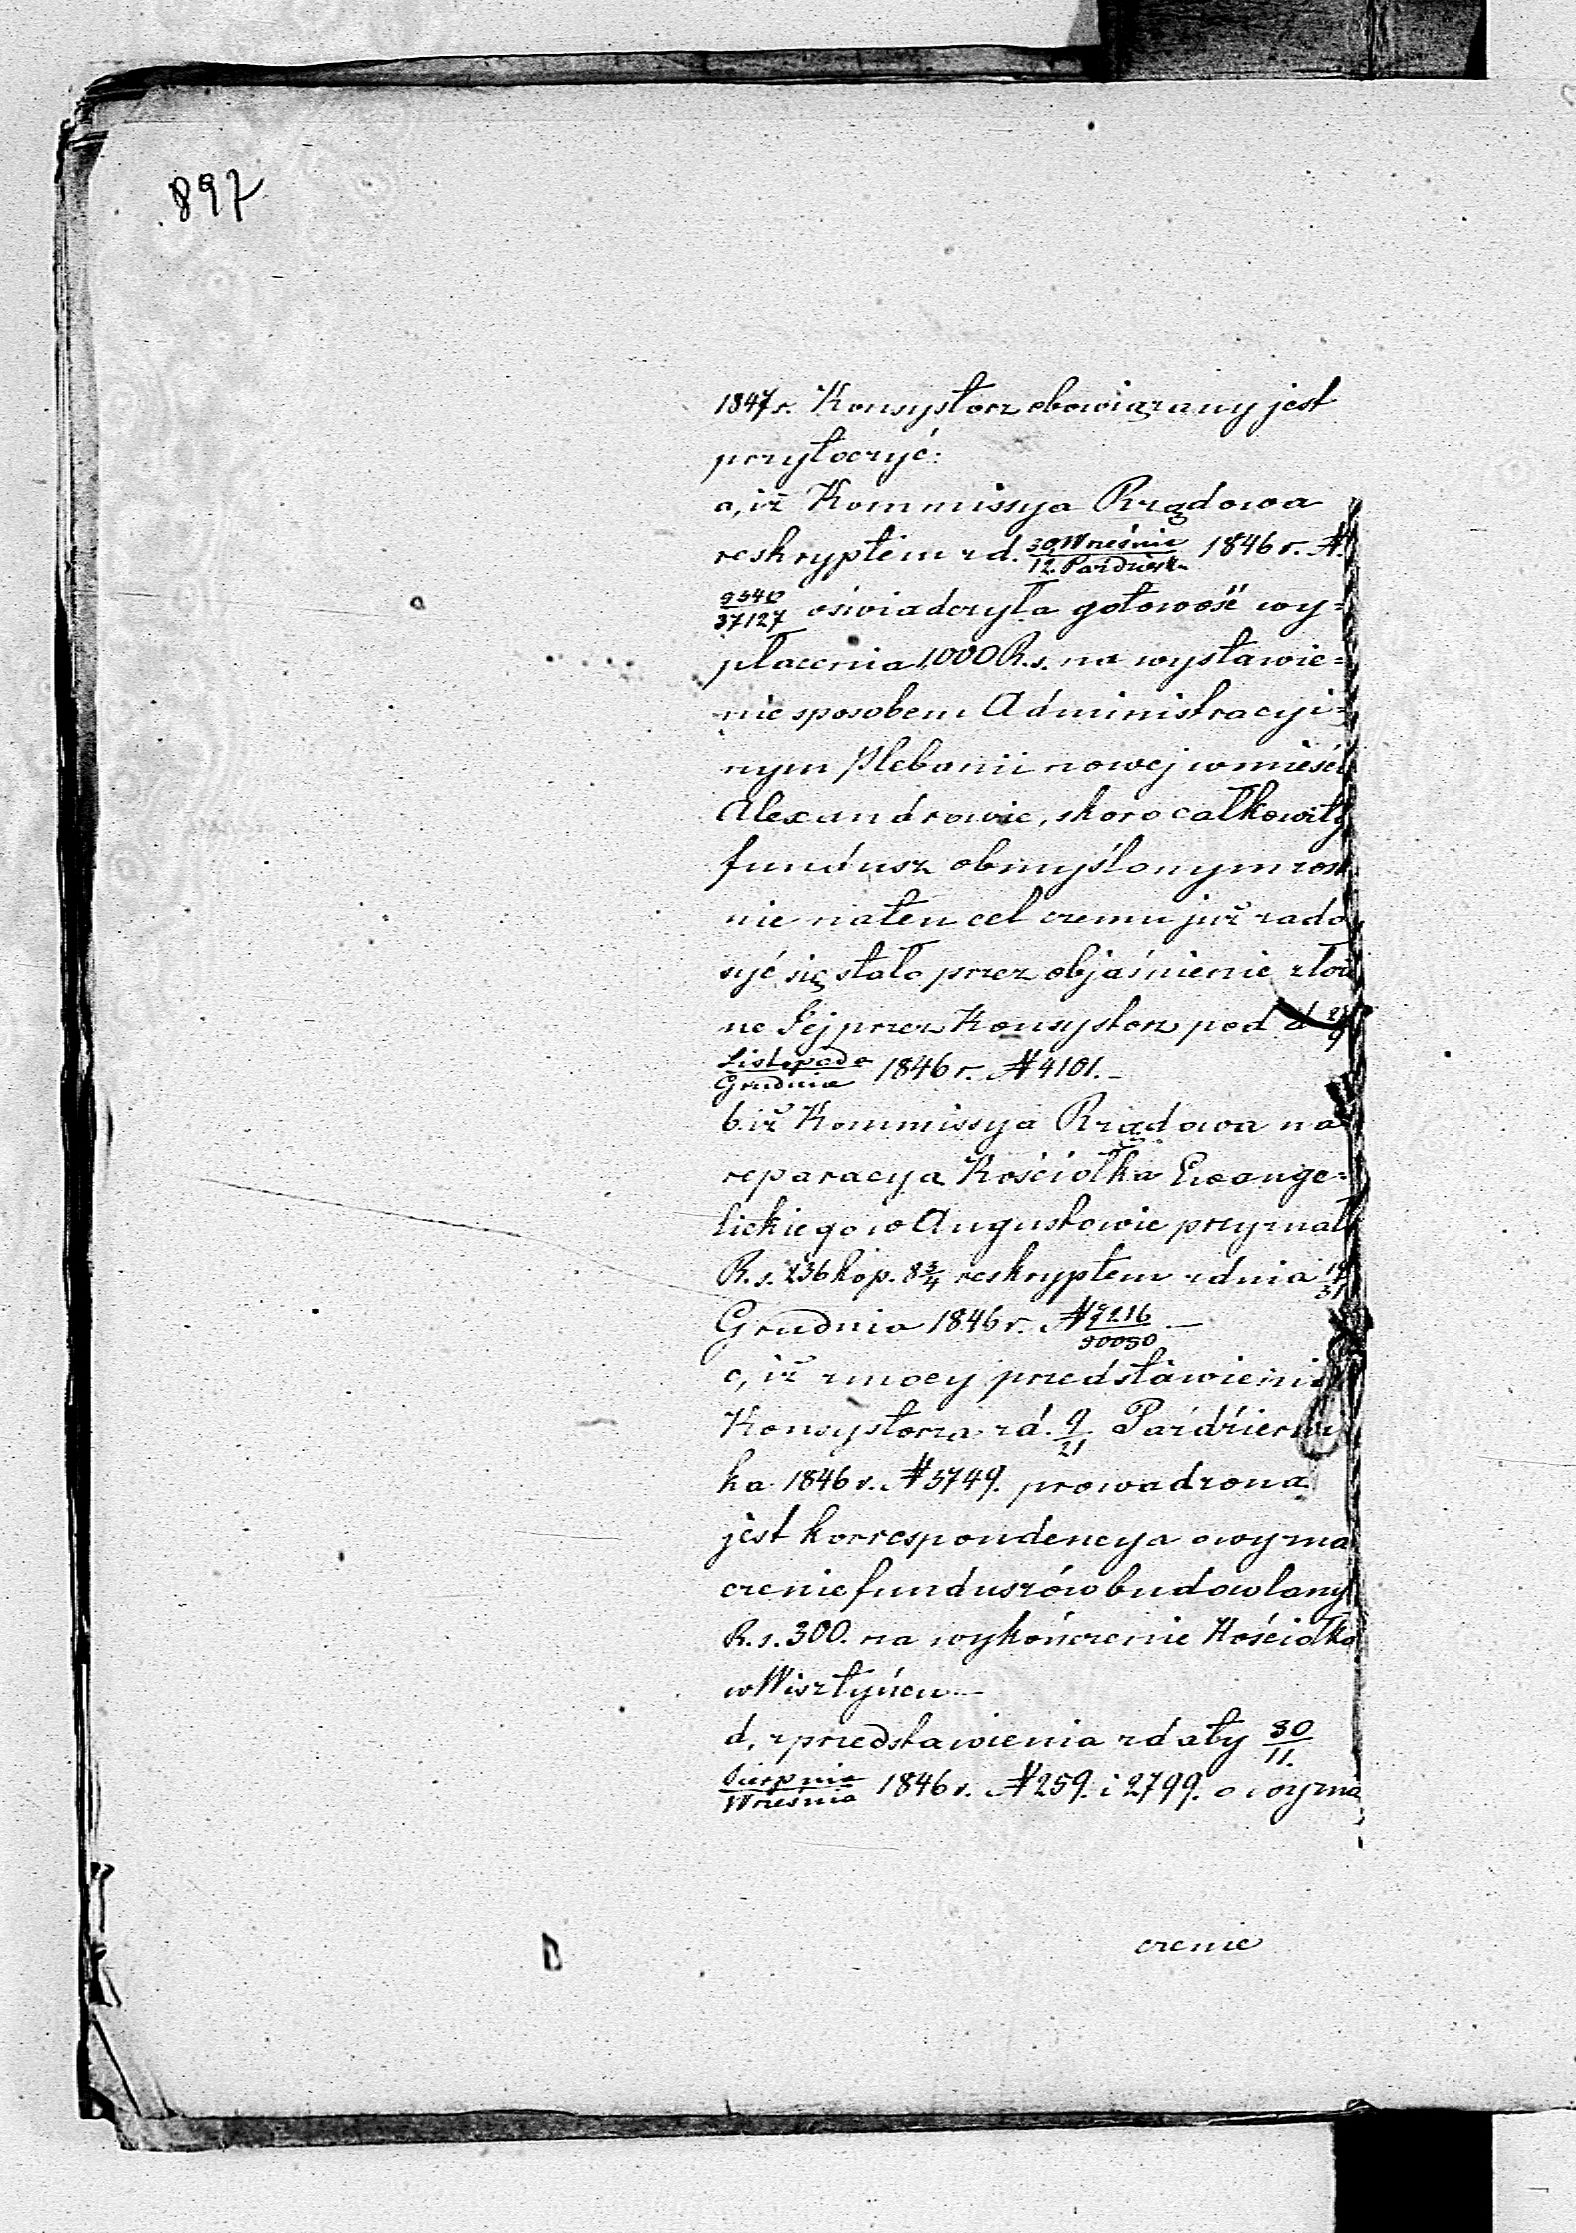 897
1847 r. Konsystorz obowiązany jest
przytoczyć:
a, iż Kommissya Rządowa
reskryptem z d. 30 Września/12. Paździer. 1846 r. №
9340/37127 oświadczyła gotowość wy=
płacenia 1,000 R.s. na wystawie=
nie sposobem Administracyi=
nym Plebanii nowej w mieści
Alexandrowie, skoro całkowity
fundusz obmyślonym zost
nie na ten cel czemu już zado
syć się stało przez objaśnienie złoż
ne Jej przez Konsystorz pod d.
Listopada/Grudnia 1846 r. № 4101. —
b. iż Kommissya Rządowa na
reparacya Kościołka Ewange=
lickiego w Augustowie przyznał
R. s. 236 kop. 8 3/4 reskryptem z dnia 19/31
Grudnia 1846 r. № 9216/50050 —
c, iż z mocy przedstawieni
Konsystorza z d. 9/21 Paźdźierni
ka 1846 r. № 3749. prowadzona
jest korrespondencya o wyzna
czenie funduszów budowlany
R. s. 300. na wykończenie Kościołka
w Wisztyńcu —
d, z przedstawienia z daty 30/11.
Sierpnia/Września 1846 r. № 259. i 2799. o wyzna
czenie